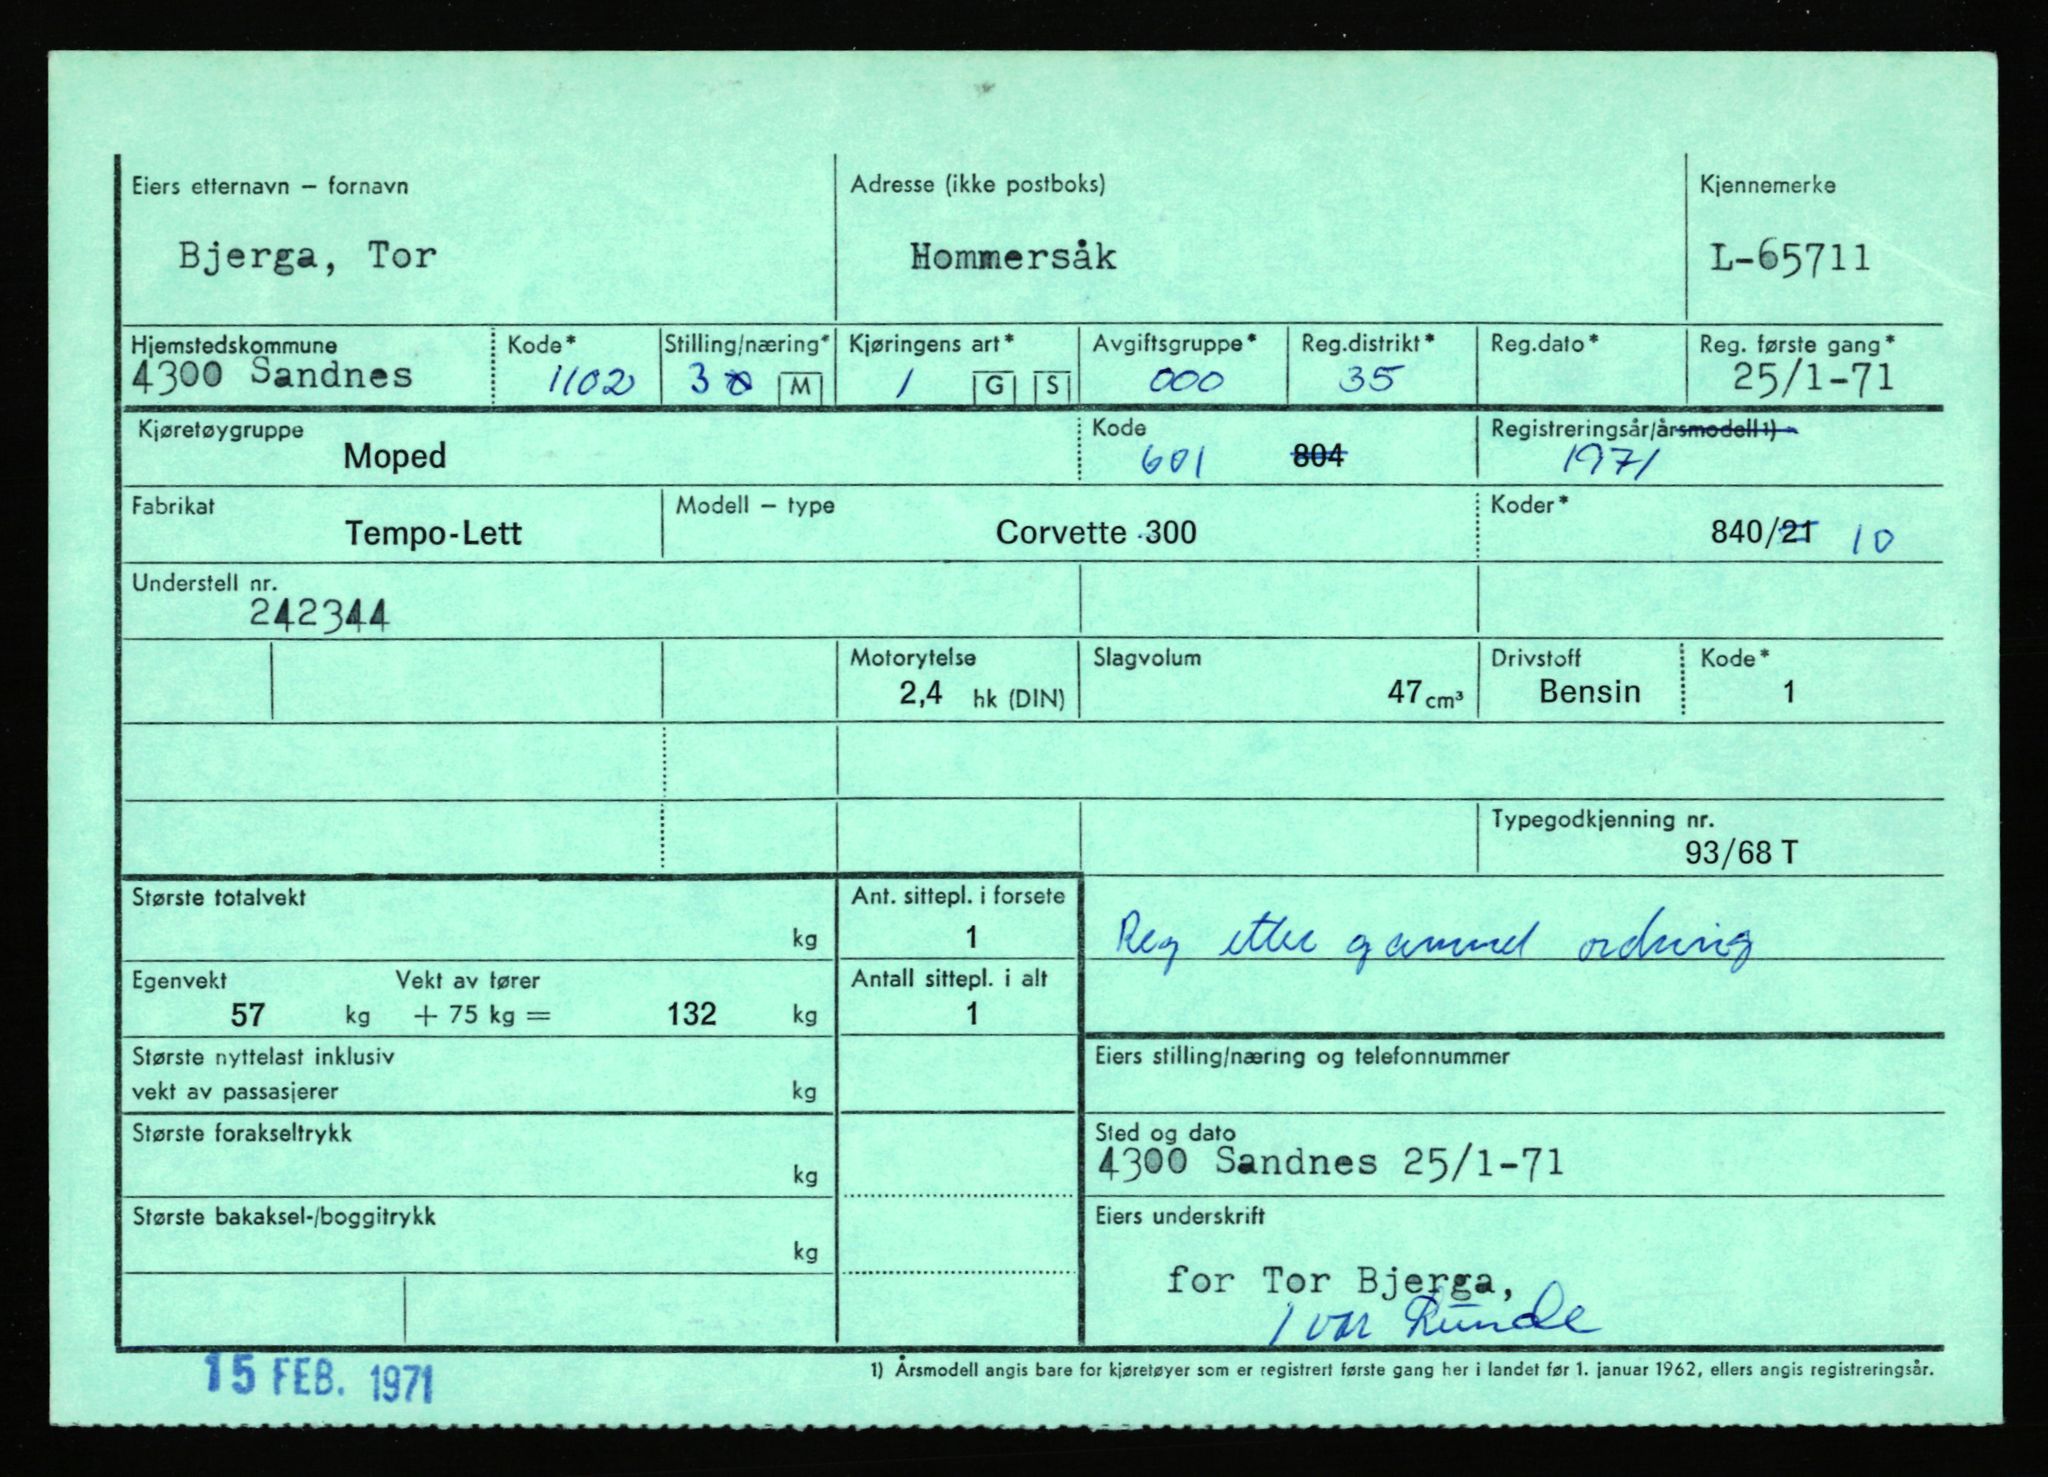 Eiers etternavn – fornavn Adresse (ikke postboks) Kjennemerke
Bjerga, Tor Hommersåk L-65711
Hjemstedskommune Kode* Stilling/næring* Kjøringens art* Avgiftsgruppe* Reg.distrikt* Reg.dato* Reg. første gang*
4300 Sandnes 1102 3 M 1 G S 000 35 25/1-71
Kjøretøygruppe Kode Registreringsår/årsmodell 1)
Moped 601 804 1971
Fabrikat Modell – type Koder*
Tempo-Lett Corvette 300 840/21 10
Understell nr.
242344
Motorytelse Slagvolum Drivstoff Kode*
2,4 hk (DIN) 47 cm³ Bensin 1
Typegodkjenning nr.
93/68 T
Største totalvekt Ant. sittepl. i forsete
kg 1 Reg etter gammel ordning
Egenvekt Vekt av fører Antall sittepl. i alt
57 kg + 75 kg = 132 kg 1
Største nyttelast inklusiv Eiers stilling/næring og telefonnummer
vekt av passasjerer kg
Største forakseltrykk Sted og dato
kg 4300 Sandnes 25/1-71
Største bakaksel-/boggitrykk Eiers underskrift
kg
for Tor Bjerga,
Ivar Runde
15 FEB. 1971 1) Årsmodell angis bare for kjøretøyer som er registrert første gang her i landet før 1. januar 1962, ellers angis registreringsår.